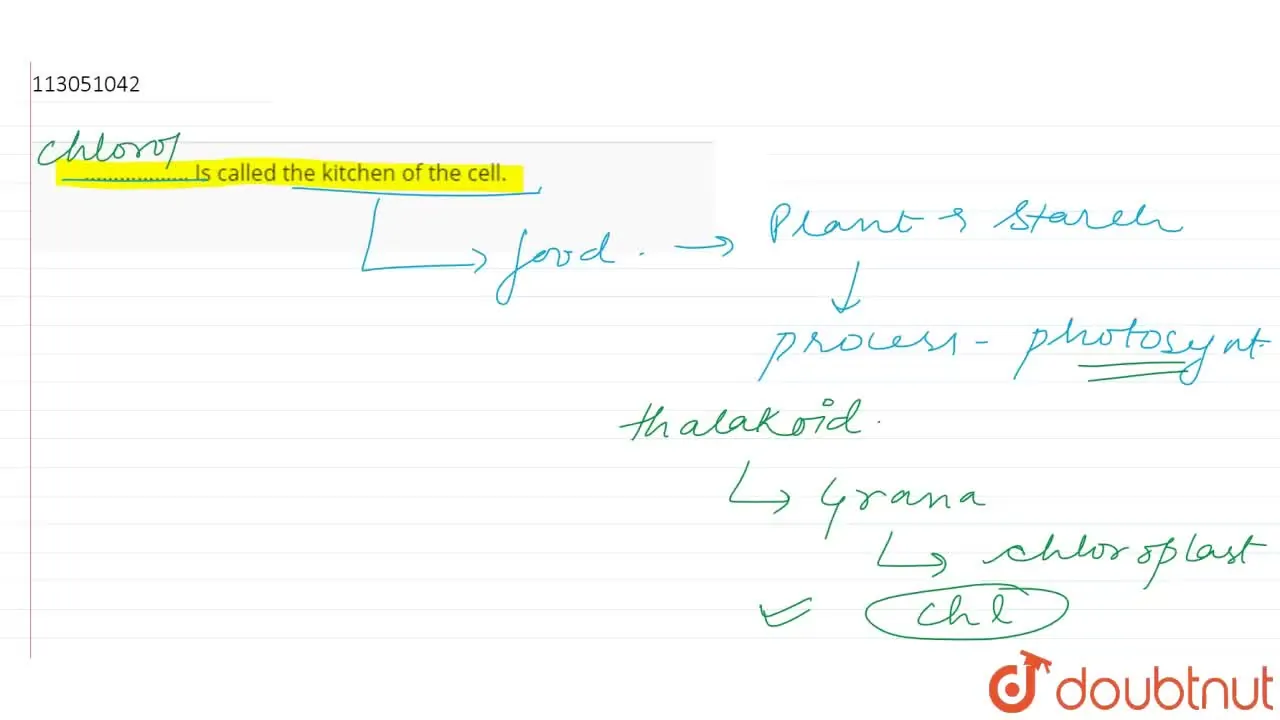 113051042
chlorop
.................... Is called the kitchen of the cell.
food. → Plant & Starch
process - photosynt.
thalakoid.
Grana
chloroplast
chl
doubtnut